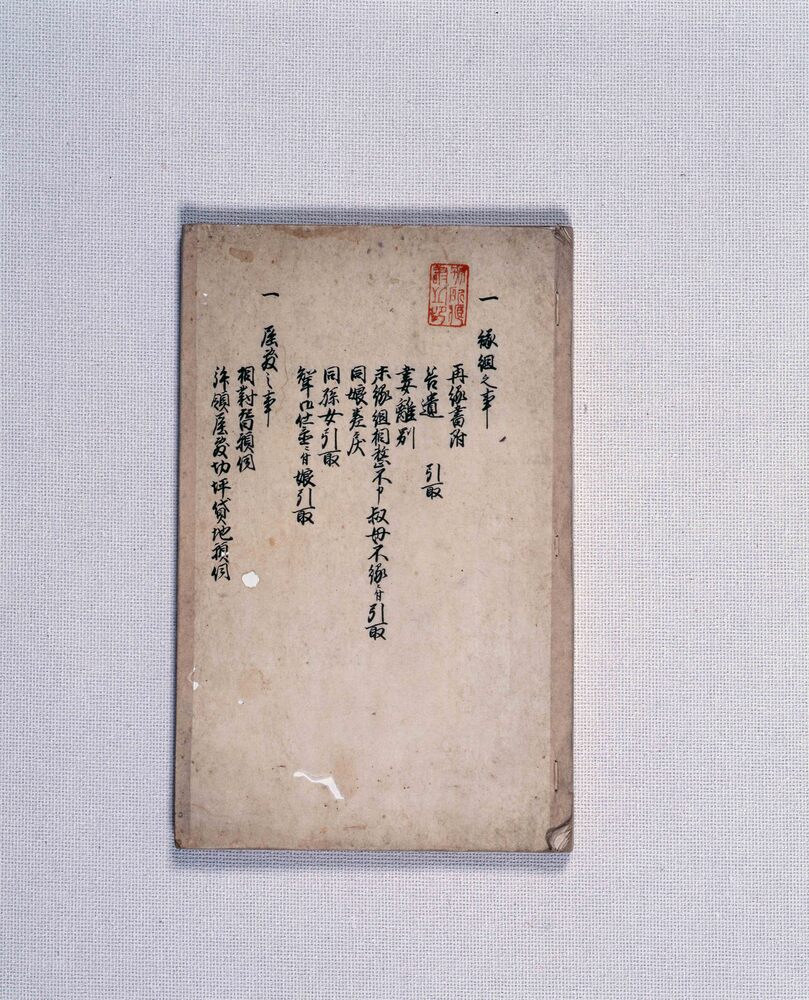 一 縁組之事
再縁書附
呼遣 引取
妻離別
未縁組相整不申叔母不縁ニ付引取
同娘差戻
同孫女引取
聟御仕置ニ付娘引取
一 屋敷之事
相對替願伺
拝領屋敷切坪貸地願伺